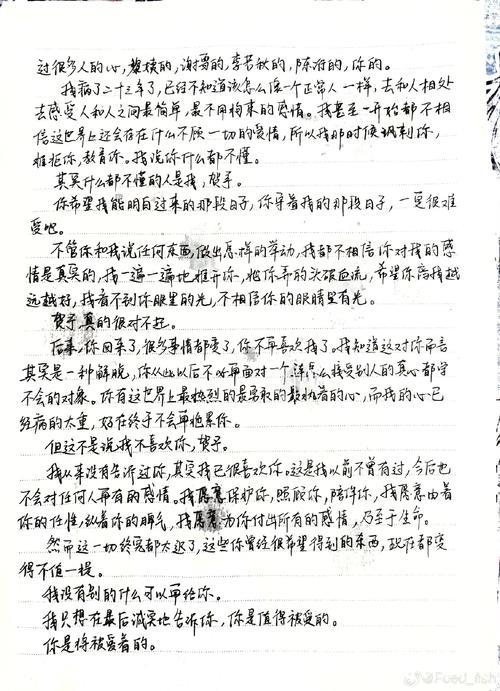 过很多人的心，黎姨的，谢雪的，李若秋的，陈府的，你的。
我病了二十三年了，已经不知道该怎么像一个正常人一样，去和人相处
去感受人和人之间最简单，最不用拘束的感情。我甚至一开始都不相
信这世界上还会存在什么不顾一切的爱情，所以我那时候讽刺你，
推拒你，教育你。我说你什么都不懂。
其实什么都不懂的人是我，贺予。
你希望我能明白过来的那段日子，你守着我的那段日子，一定很难
受吧。
不管你和我说任何东西，做出怎样的举动，我都不相信你对我的感
情是真实的，我一遍一遍地推开你，把你弄的头破血流，希望你离我越
远越好，我看不到你眼里的光，不相信你的眼睛里有光。
贺予真的很对不起。
后来，你回来了，很多事情都变了，你不再喜欢我了。我知道这对你而言
其实是一种解脱，你从此以后不必再面对一个连怎么接受别人的真心都学
不会的对象。你有这世界上最热烈的最勇敢的最执着的心，而我的心已
经病的太重，好在终于不会再拖累你。
但这不是说我不喜欢你，贺予。
我从来没有告诉过你，其实我已很喜欢你。这是我以前不曾有过，今后也
不会对任何人再有的感情。我愿意保护你，照顾你，陪伴你，我愿意由着
你的任性，纵着你的脾气，我愿意为你付出所有的感情，乃至于生命。
然而这一切终究都太迟了，这些你曾经很希望得到的东西，现在都变
得不值一提。
我没有别的什么可以再给你。
我只想在最后诚实地告诉你，你是值得被爱的。
你是将被爱着的。
@Fued_fish